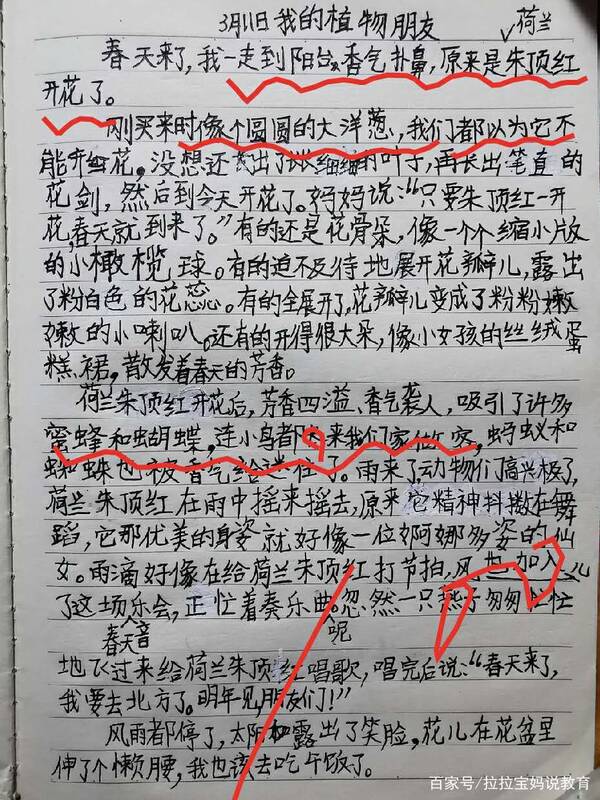 荷兰
3月11日我的植物朋友
春天来了,我一走到阳台,香气扑鼻,原来是朱顶红
开花了。
刚买来时像个圆圆的大洋葱,我们都以为它不
能开花。没想还长出了长细细的叶子,再长出笔直的
花剑,然后到今天开花了。妈妈说:“只要朱顶红一开
花,春天就到来了。”有的还是花骨朵,像一个个缩小版
的小橄榄球。有的迫不及待地展开花瓣儿,露出
了粉白色的花蕊。有的全展开了,花瓣儿变成了粉粉嫩
嫩的小喇叭。还有的开得很大朵,像小女孩的丝绒蛋
糕裙,散发着春天的芳香。
荷兰朱顶红开花后,芳香四溢、香气袭人,吸引了许多
蜜蜂和蝴蝶,连小鸟都来我们家做客,蚂蚁和
蜘蛛也被香气给迷住了。雨来了动物们高兴极了,
荷兰朱顶红在雨中摇来摇去,原来它精神抖擞在舞
蹈,它那优美的身姿就好像一位婀娜多姿的仙
女。雨滴好像在给荷兰朱顶红打节拍,风也加入
了这场乐会,正忙着奏乐曲呢忽然一只燕子匆匆忙忙
春天音
地飞过来给荷兰朱顶红唱歌,唱完后说:“春天来了,
我要去北方了。明年见朋友们!”
风雨都停了,太阳露出了笑脸,花儿在花盆里
伸了个懒腰,我也该去吃午饭了。
百家号/拉拉宝妈说教育